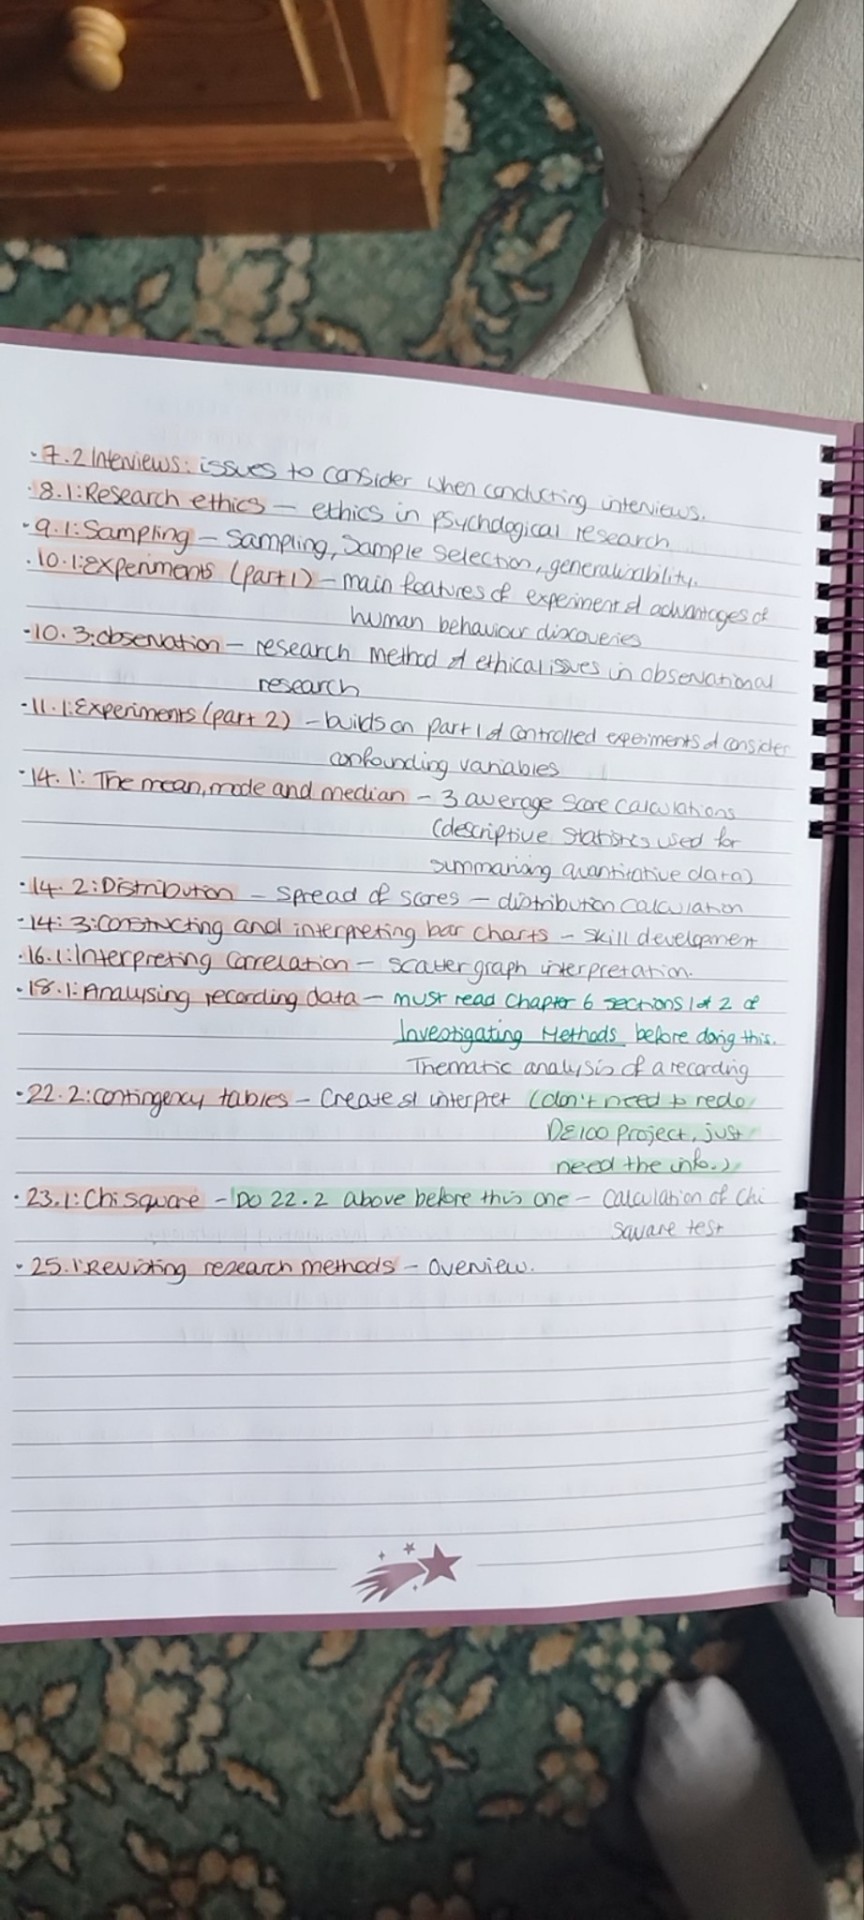 · 7.2 Interviews: issues to consider when conducting interviews.
· 8.1: Research ethics – ethics in psychological research
· 9.1: Sampling – Sampling, Sample Selection, generalisability.
· 10.1: Experiments (part 1) – main features of experiment & advantages of
human behaviour discoveries
· 10.3: observation – research method & ethical issues in observational
research
· 11.1: Experiments (part 2) – builds on part 1 & controlled experiments & consider
confounding variables
· 14.1: The mean, mode and median – 3 average score calculations
(descriptive statistics used for
summarising quantitative data)
· 14.2: Distribution – Spread of scores – distribution calculation
· 14:3: Constructing and interpreting bar charts – Skill development
· 16.1: Interpreting correlation – scatter graph interpretation.
· 18.1: Analysing recording data – must read Chapter 6 sections 1 & 2 of
Investigating Methods before doing this.
Thematic analysis of a recording
· 22.2: contingency tables – Create & interpret (don't need to redo
DE100 Project, just
need the info.)
· 23.1: Chi square – Do 22.2 above before this one – calculation of Chi
Square test
· 25.1: Revisiting research methods – Overview.